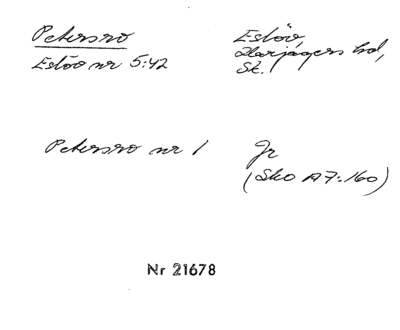 Petersro
Eslöv nr 5:42
Eslöv,
Harjagers hd,
Sk.
Petersro nr 1
Jr
(Sko A7:160)
Nr 21678